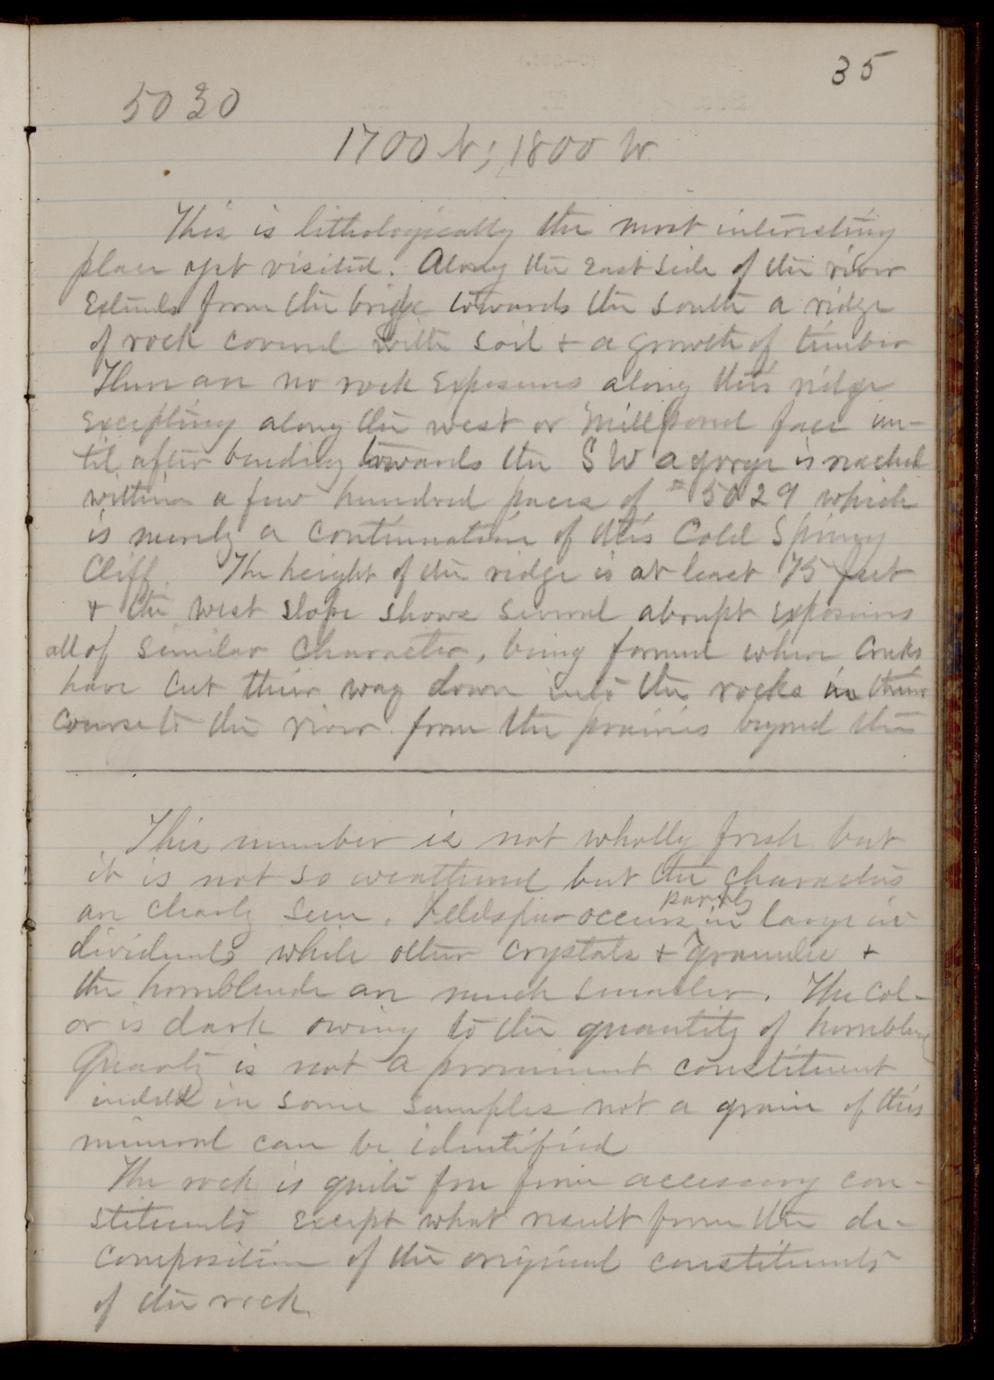 35
5030
1700 N; 1800 W.
This is lithologically the most interesting
place yet visited. Along the East side of the river
Extends from the bridge towards the south a ridge
of rock covered with soil + a growth of timber
There are no rock Exposures along this ridge
Excepting along the west or Millpond face un-
til after bending towards the SW a gorge is reached
within a few hundred paces of # 5029 which
is merely a continuation of this Cold Spring
Cliff. The height of the ridge is at least 75 feet
+ the west slope shows several abrupt exposures
all of similar character, being formed where Creeks
have cut their way down into the rocks in their
course to the river from the prairies beyond the
This number is not wholly fresh but
it is not so weathered but the characters
are clearly seen. Feldspar occurs partly in large in-
dividuals while other crystals + granules +
the hornblende are much smaller. The col-
or is dark owing to the quantity of hornblende
Quartz is not a prominent constituent
indeed in some samples not a grain of this
mineral can be identified
The rock is quite free from accessory con-
stituents except what result from the de-
composition of the original constituents
of the rock.